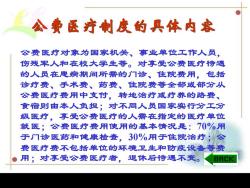 公费医疗制度的具体内容
公费医疗对象为国家机关、事业单位工作人员,
伤残军人和在校大学生等。对享受公费医疗待遇
的人员在患病期间所需的门诊、住院费用,包括
诊疗费、手术费、药费、住院费等全部或部分从
公费医疗费用中支付,转地治疗或疗养的路费、
食宿则由本人负担;对不同人员国家实行分工分
级医疗,享受公费医疗的人要在指定的医疗单位
就医;公费医疗费用使用的基本情况是:70%用
于门诊医药和健康检查,30%用于住院治疗;公
费医疗费不包括单位的环境卫生和防疫设备等费
用;对享受公费医疗者,退休后待遇不变。
BACK